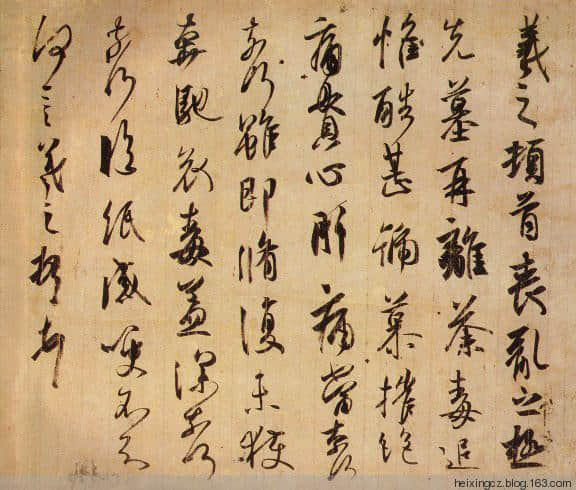 羲之頓首喪亂之極
先墓再離荼毒追
惟酷甚號慕摧絶
痛貫心肝痛當奈何
奈何雖即脩復未獲
奔馳哀毒益深奈何
奈何臨紙感哽不知
何言羲之頓首
heixingcz.blog.163.com